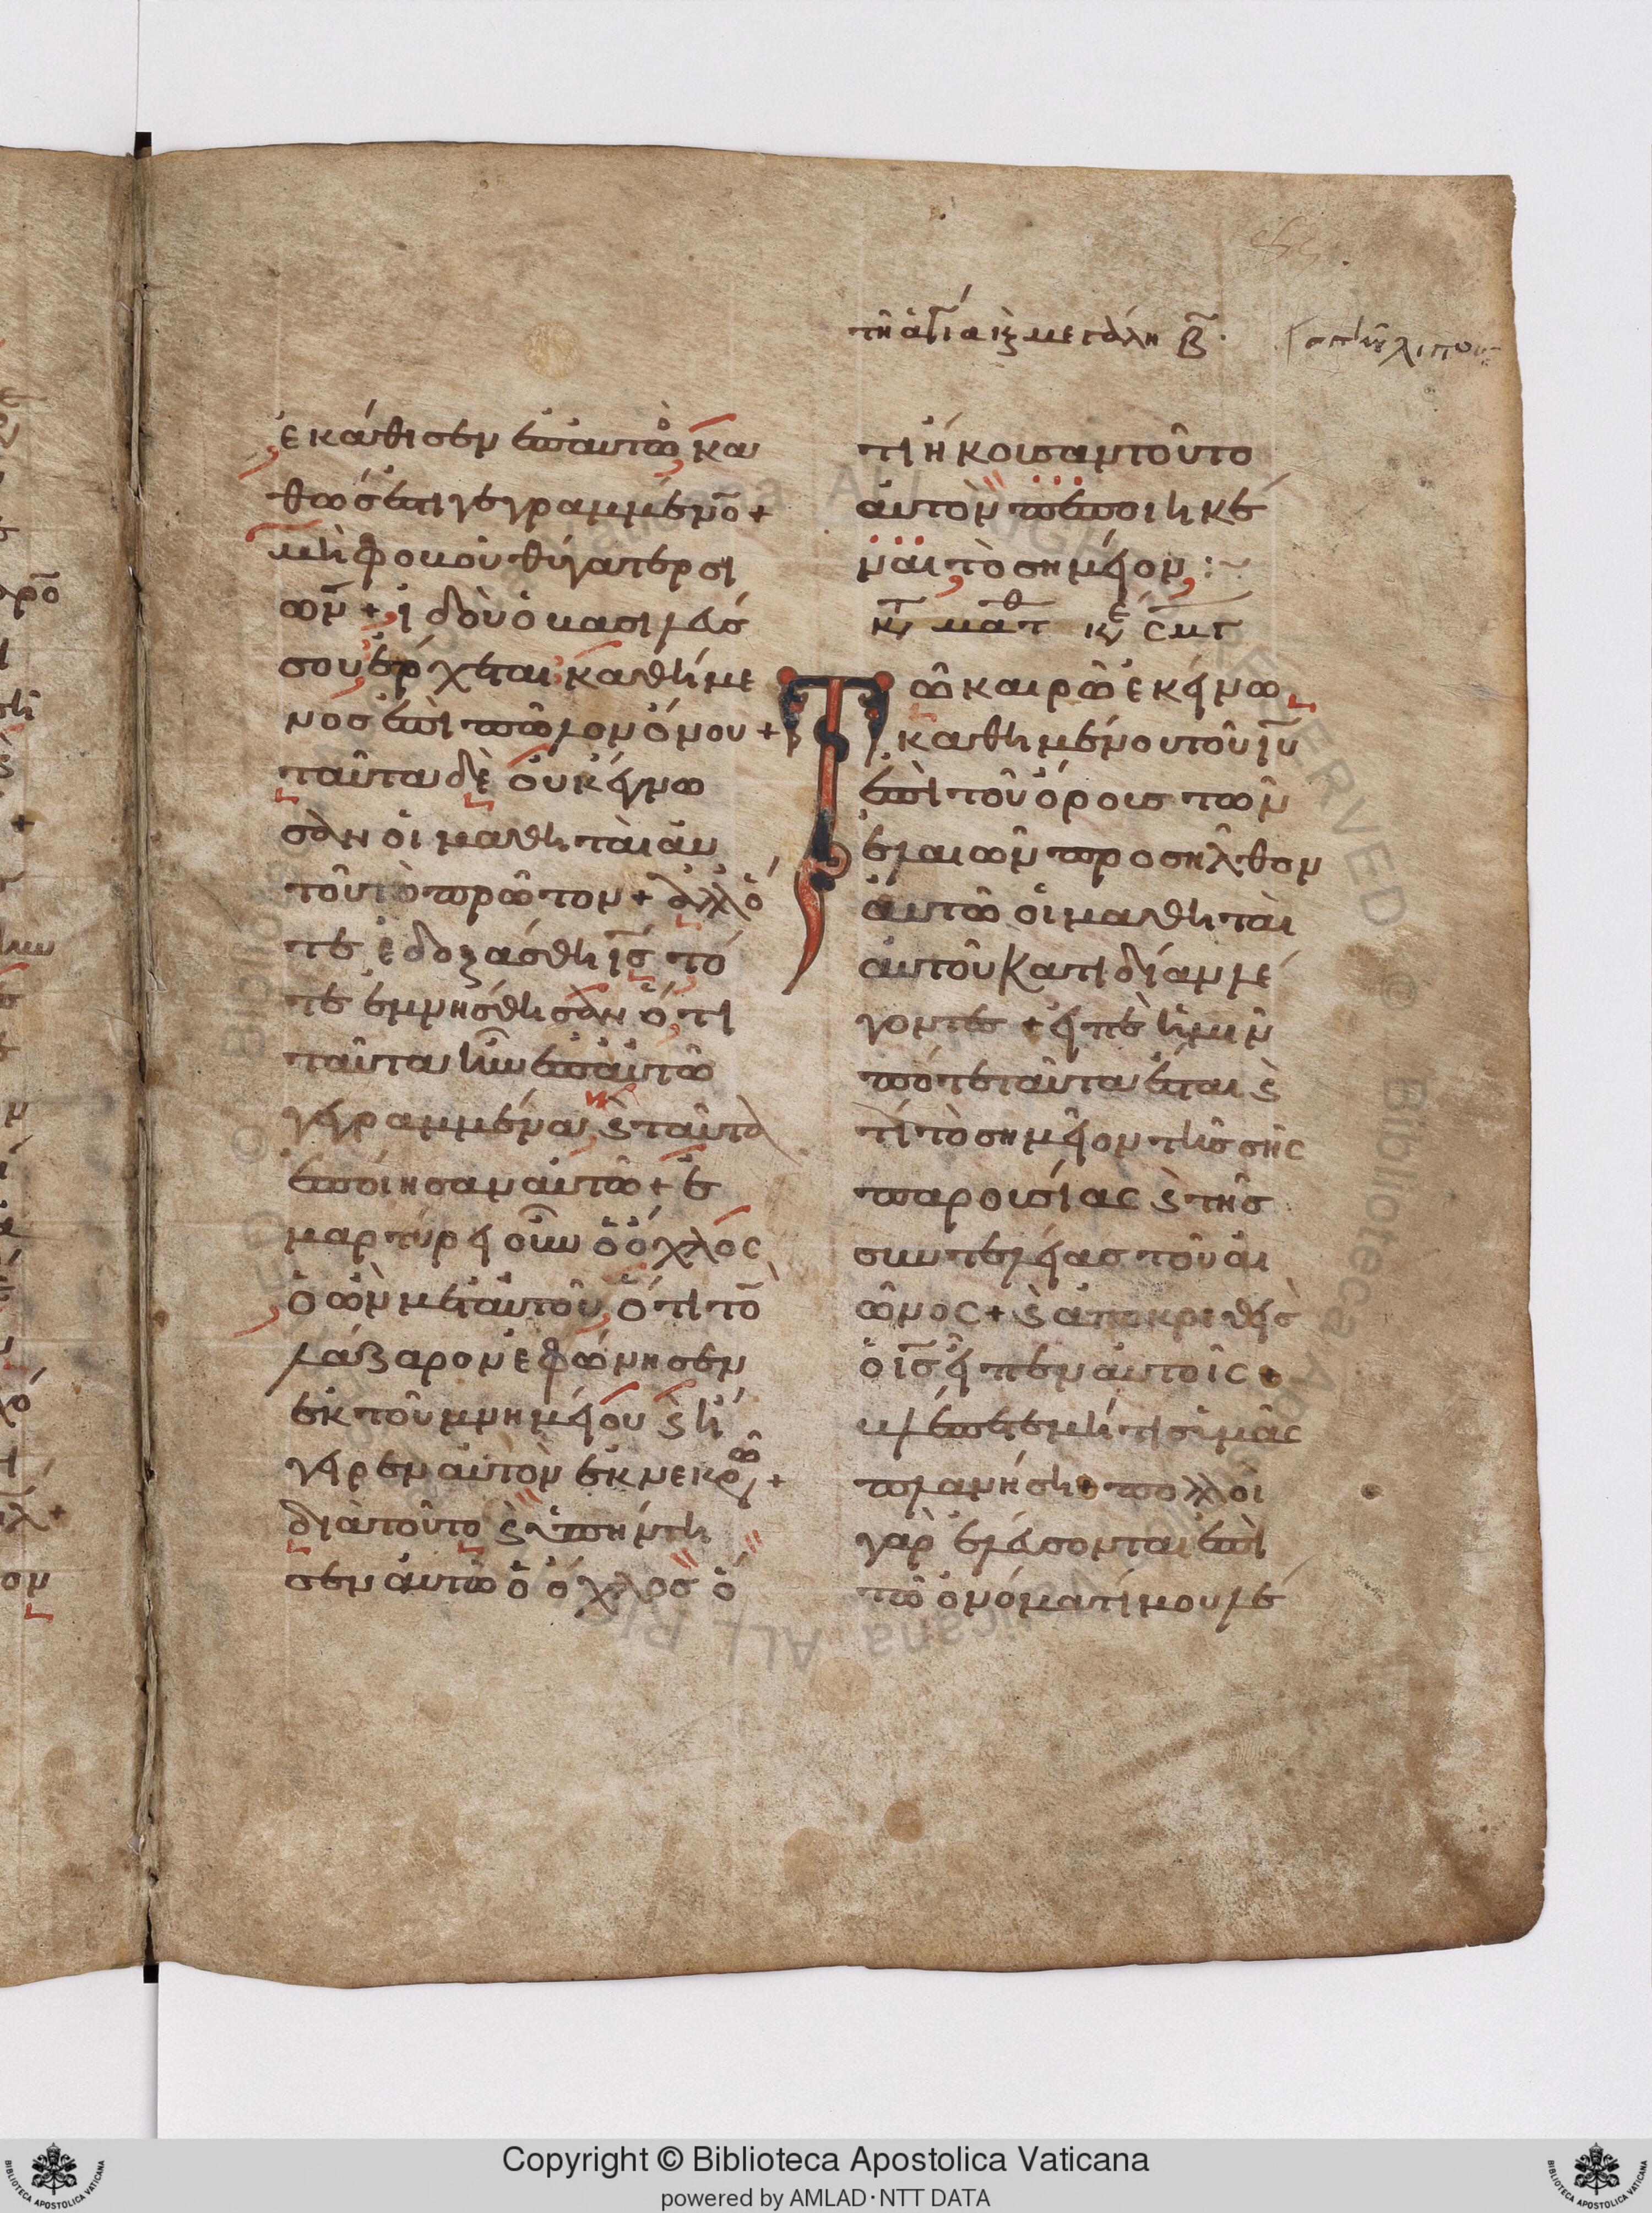 τῆ ἁγία κ μεγάλη β
ἐκάθισεν ἐπαυτὼ κα
θώς ἐστι γεγραμμένο +
μὴ φοβοῦ θύγατερ σι
ὼν + ἰδοὺ ὁ βασιλεύσ
σου ἔρχεται καθήμε
νοσ ἐπὶ πῶλον ὄνου +
ταῦτα δὲ οὐκ ἔγνω
σαν οἱ μαθηταὶ αὐ
τοῦ τὸ πρῶτον + ἀλλό
τε ἐδοξάσθη ις τό
τε ἐμνήσθησαν ὅτι
ταῦτα ἦν ἐπαυτῶ
γεγραμμένα ϛ ταῦτα
ἐποίησαν αὐτῶ + ἐ
μαρτύρει οὖν ὁ ὄχλος
ὁ ὢν μεταὐτοῦ ὅτι τὸ
λάζαρον ἐφώνησεν
ἐκ τοῦ μνημείου ϛ ἤ
γειρεν αὐτὸν ἐκ νεκρῶ +
διὰ τοῦτο ϛ ὑπήντη
σεν αὐτῶ ὁ ὄχλοσ ὅ
τι ἤκουσαν τοῦτο
αὐτὸν πεποιηκέ
ναι τὸ σημεῖον :~
ματθ
Τῶ καιρῶ ἐκείνω
καθημένου τοῦ ιυ
ἐπὶ τοῦ ὄρουσ τῶν
ἐλαιῶν προσῆλθον
αὐτῶ οἱ μαθηταὶ
αὐτοῦ κατιδίαν λέ
γοντεσ + εἰπὲ ἡμῖν
πότε ταῦτα ἔσται ϛ
τί τὸ σημεῖον τῆς σῆς
παρουσίας ϛ τῆσ
συντελείασ τοῦ αἰ
ῶνος + ϛ ἀποκριθεὶσ
ὁ ισ εἶπεν αὐτοῖς +
βλέπετε μή τισ ὑμᾶς
πλανήση + πολλοὶ
γὰρ ἐλεύσονται ἐπὶ
τῶ ὀνόματί μου λέ